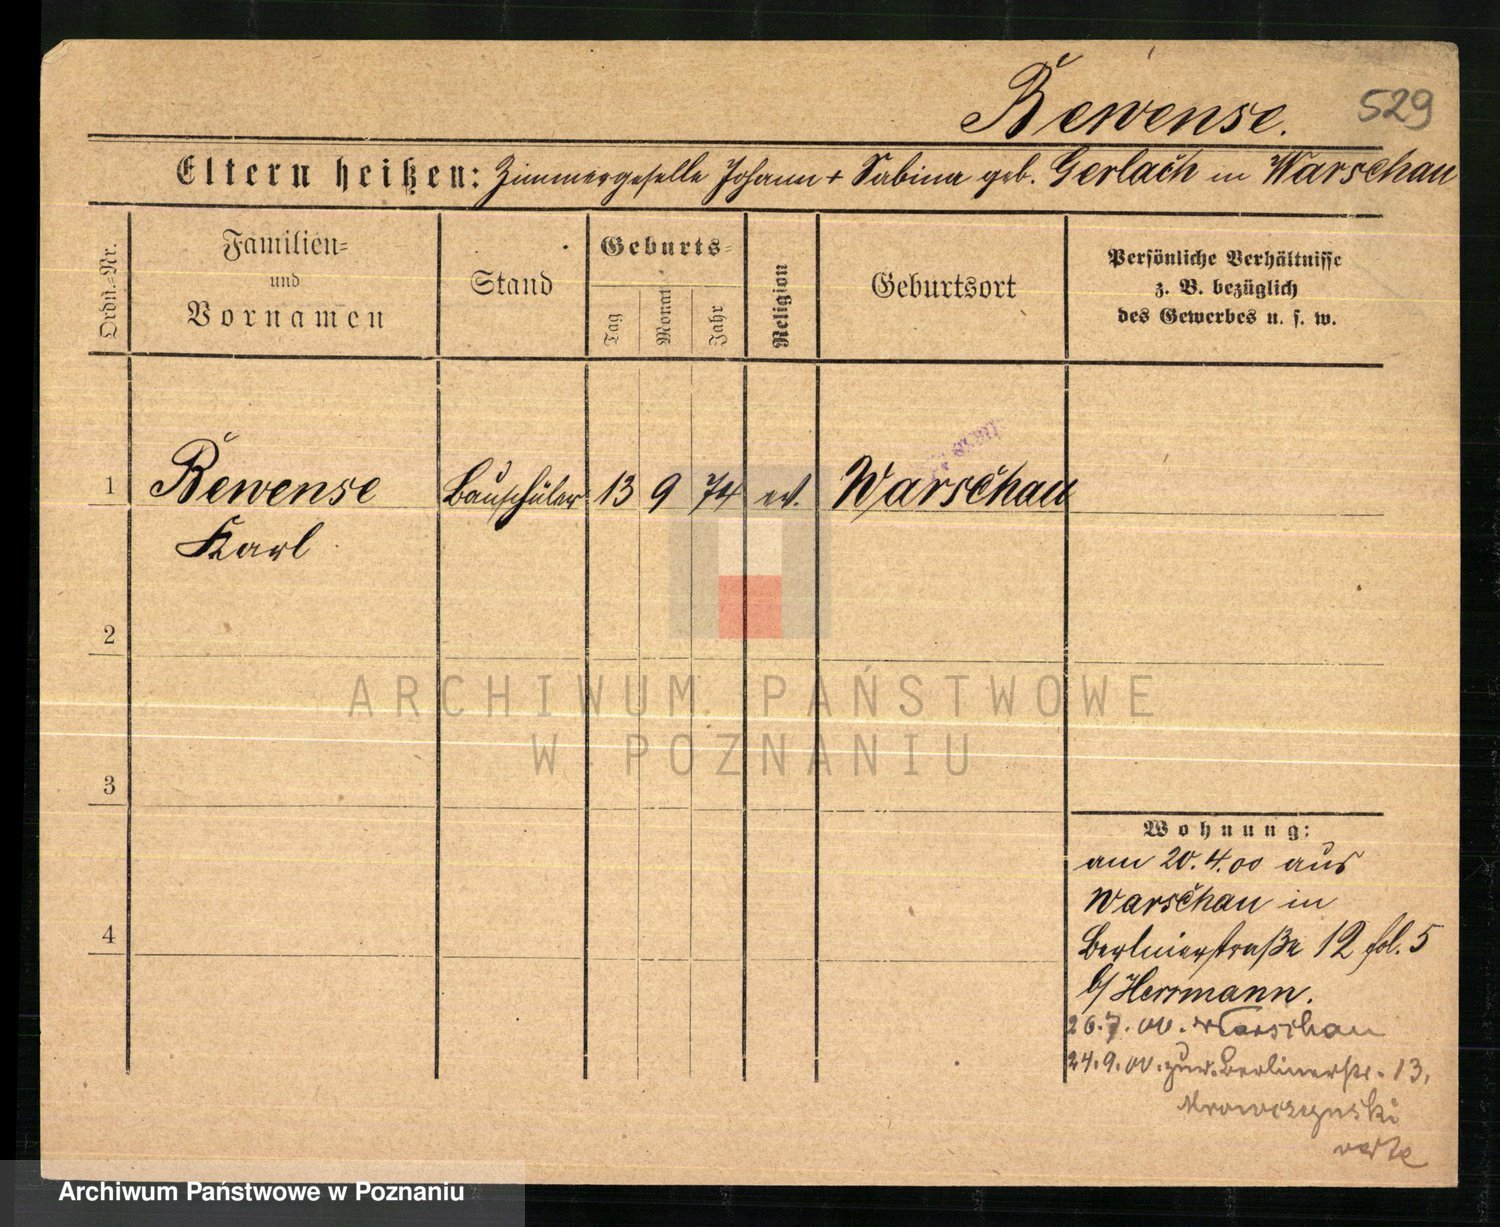 Bewense.
529
Eltern heißen: Zimmergeselle Johann + Sabina geb. Gerlach in Warschau
Ordn.-Nr.
Familien- und Vornamen
Stand
Geburts-
Tag
Monat
Jahr
Religion
Geburtsort
Persönliche Verhältnisse
z. B. bezüglich
des Gewerbes u. s. w.
1 Bewense Bauschüler 13 9 74 ev. Warschau
Karl
2
3
4
Wohnung:
am 20.4.00 aus
Warschau in
Berlinerstraße 12 fol. 5
b/ Herrmann.
26.7.00. Warschau
24.9.00. zur. Berlinerstr. 13,
Mrowczynski
ARCHIWUM PAŃSTWOWE
W POZNANIU
Archiwum Państwowe w Poznaniu